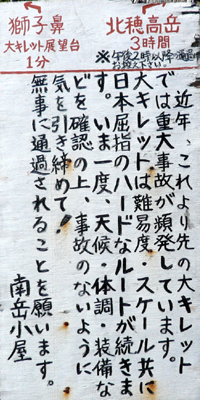 獅子鼻
大キレット展望台
1分
北穂高岳
3時間
※午後2時以降の通過は
お控え下さい。
近年、これより先の大キレット
では重大事故が頻発しています。
大キレットは難易度・スケール共に
日本屈指のハードなルートが続きま
す。いま一度、天候・体調・装備な
どを確認の上、事故のないように
気を引き締めて!
無事に通過されることを願います。
南岳小屋